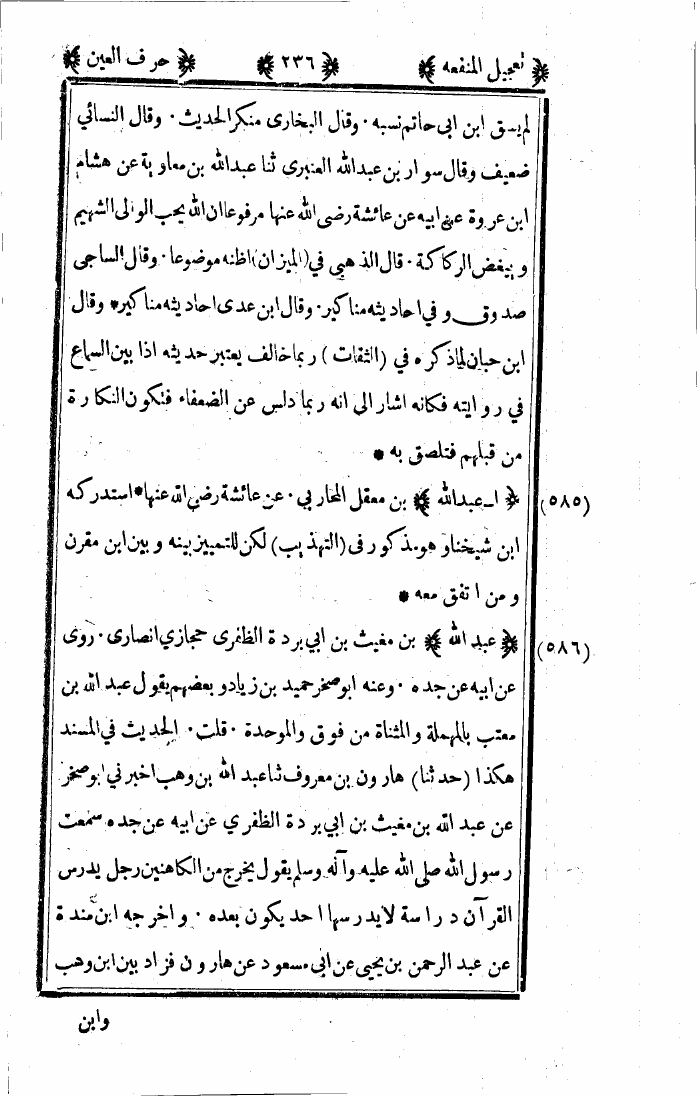 ﴿ تعجيل المنفعه ﴾ ﴿ ٢٣٦ ﴾ ﴿ حرف العين ﴾
لم يسق ابن ابى حاتم نسبه ٠ وقال البخارى منكر الحديث ٠ وقال النسائي
ضعيف وقال سوار بن عبدالله العنبرى ثنا عبدالله بن معاوية عن هشام
ابن عروة عن ابيه عن عائشة رضى الله عنها مرفوعا ان الله يحب الوالى الشهيم
و يبغض الركاكة ٠ قال الذهبى في (الميزان) اظنه موضوعا ٠ وقال الساجى
صدوق و فى احاديثه مناكير ٠ وقال ابن عدى احاديثه مناكير * وقال
ابن حبان لما ذكره في (الثقات) ربما خالف يعتبر حديثه اذا بين السماع
في روايته فكانه اشار الى انه ربما دلس عن الضعفاء فتكون النكارة
من قبلهم فتلصق به *
(٥٨٥) ﴿ ا ـ عبدالله ﴾ بن معقل المحاربي ٠ عن عائشة رضى الله عنها * استدركه
ابن شيخنا و هو مذكور فى (التهذيب) لكن للتمييز بينه و بين ابن مقرن
و من اتفق معه *
(٥٨٦) ﴿ عبد الله ﴾ بن مغيث بن ابي بردة الظفرى حجازي انصارى ٠ روى
عن ابيه عن جده ٠ وعنه ابو صخر حميد بن زياد و بعضهم يقول عبد الله بن
معتب بالمهملة و المثناة من فوق والموحدة ٠ قلت ٠ الحديث في المسند
هكذا (حدثنا) هارون بن معروف ثنا عبد الله بن وهب اخبرني ابو صخر
عن عبد الله بن مغيث بن ابي بردة الظفري عن ابيه عن جده سمعت
رسول الله صلى الله عليه وآله وسلم يقول يخرج من الكاهنين رجل يدرس
القرآن دراسة لا يدرسها احد يكون بعده ٠ و اخرجه ابن مندة
عن عبد الرحمن بن يحيى عن ابى مسعود عن هارون فزاد بين ابن وهب
وابن